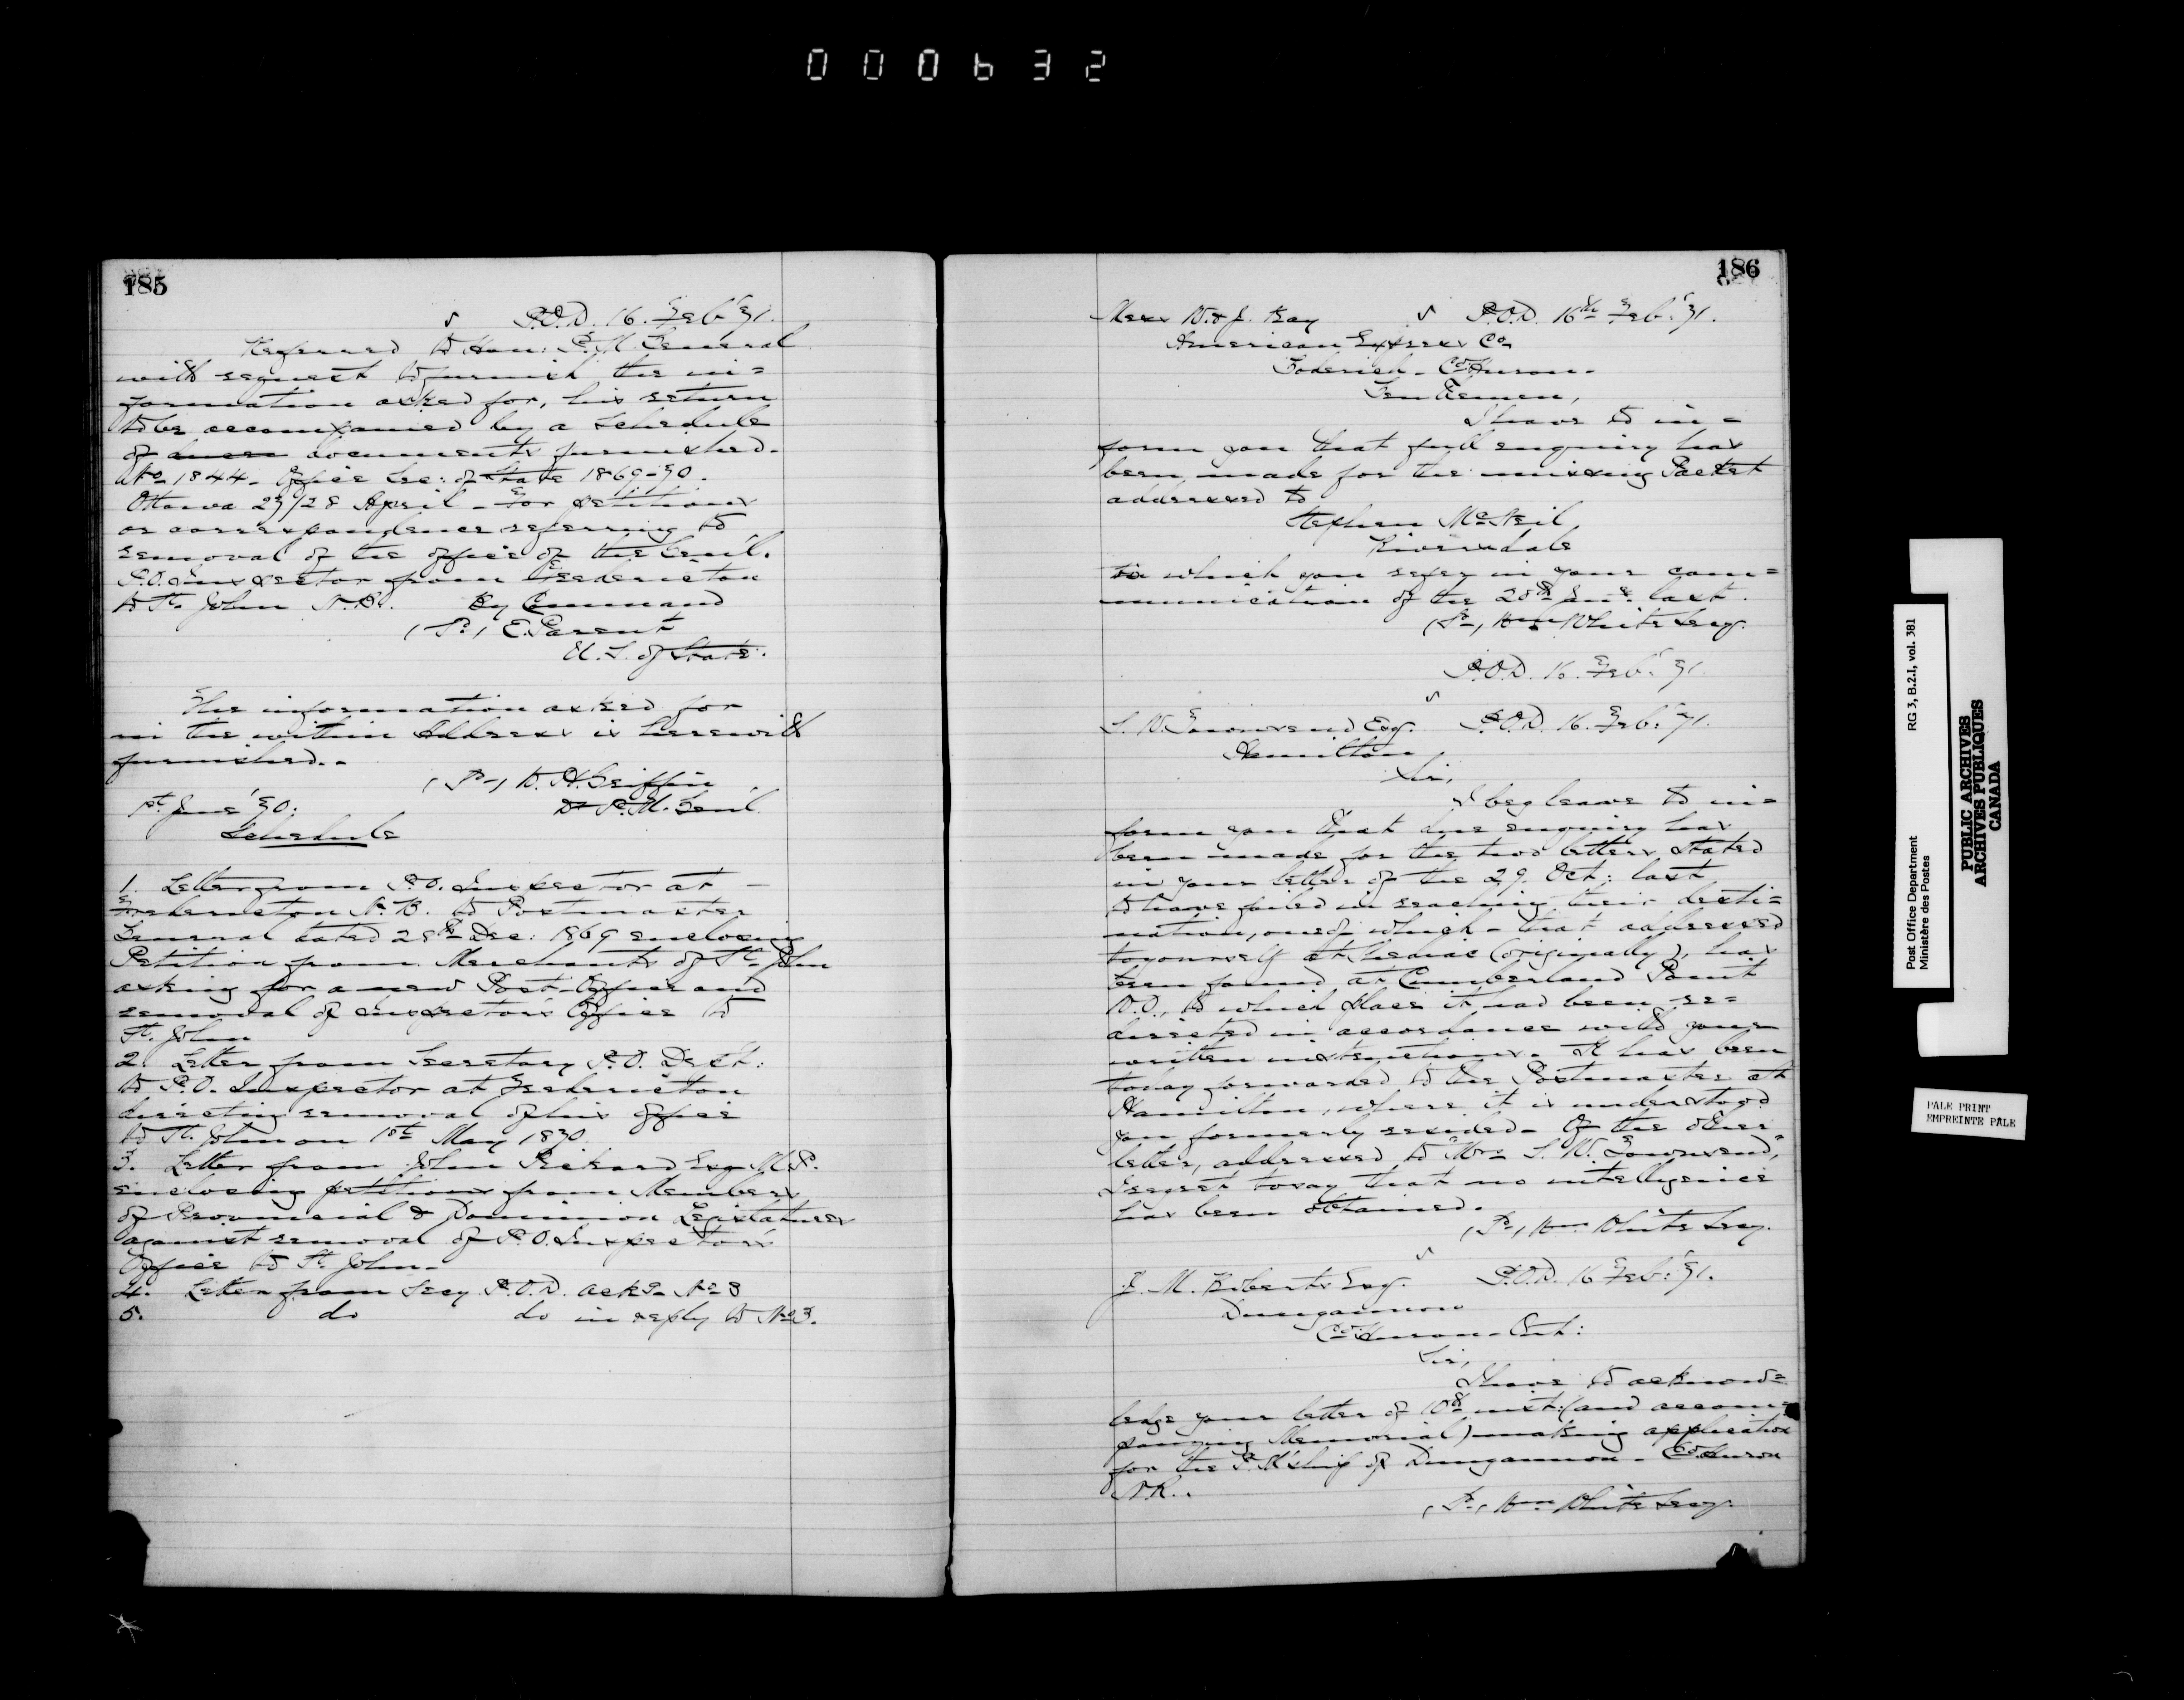 000632
185
P.O.D. 16. Feby '71.
Referred to Hon: P.M. General
with request to furnish the in=
formation asked for, his return
to be accompanied by a Schedule
of documents furnished.
No 1844 - Office Sec: of State 1869-70.
Ottawa 27/28 April - For petitions
or correspondence referring to
removal of the office of the Genl.
P.O. Inspector from Fredericton
to St. John N.B. By Command
(Sd) E. Parent
U.S. of State.
The information asked for
in the within Address is herewith
furnished. -
(Sd) W.H. Griffin
D. P.M. Genl.
1st June '70:
Schedule
1. Letter from P.O. Inspector at -
Fredericton N.B. to Postmaster
General dated 28th Dec: 1869 enclosing
Petition from Merchants of St. John
asking for a new Post-Office and
removal of Inspector's Office to
St. John
2. Letter from Secretary P.O. Dept:
to P.O. Inspector at Fredericton
directing removal of his office
to St. John on 1st May 1870.
3. Letter from John Pickard Esq M.P.
enclosing petitions from Members
of Provincial & Dominion Legislatures
against removal of P.O. Inspector's
Office to St. John -
4. Letter from Secy P.O.D. ackg No 3
5. do do in reply to No 3.
186
Mess W. & J. Kay P.O.D. 16th Feby '71.
American Express Co
Goderich - Co Huron -
Gentlemen,
I have to in=
form you that full enquiry has
been made for the missing Packet
addressed to
Stephen McNeil
Riversdale
to which you refer in your com=
munication of the 28th last.
(Sd) Wm White Secy.
P.O.D. 16. Feby '71
S. W. Townsend Esq. P.O.D. 16. Feby '71.
Hamilton
Sir,
I beg leave to in=
form you that due enquiry has
been made for the two letters stated
in your letter of the 29 Oct: last
to have failed in reaching their desti=
nation, one of which - that addressed
to yourself at Shediac (originally), has
been found at Cumberland Point
N.B., to which place it had been re=
directed in accordance with your
written instructions. It has been
today forwarded to the Postmaster at
Hamilton, where it is understood
you formerly resided - Of the other
letter, addressed to "Mrs S. W. Townsend,"
I regret to say that no intelligence
has been obtained.
(Sd) Wm White Secy.
J. M. Roberts Esq. P.O.D. 16 Feby '71.
Dungannon
Co Huron - Ont:
Sir,
I have to acknow=
ledge your letter of 10th inst: (and accom=
panying Memorial) making application
for the P.M'ship of Dungannon - Co Huron
N.R..
(Sd) Wm White Secy.
Post Office Department RG 3, B.2.I, vol. 381
Ministère des Postes
PUBLIC ARCHIVES
ARCHIVES PUBLIQUES
CANADA
PALE PRINT
EMPREINTE PALE